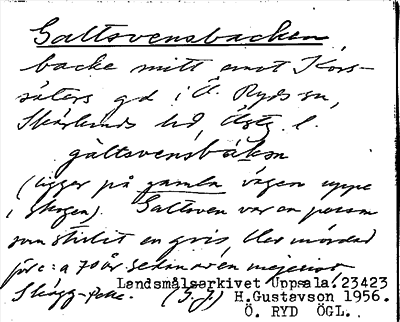 Galtsvensbacken
backe mitt emot Kors-
säters gd i Ö. Ryds sn,
Skärkinds hd, Östg. l.
galtsvensbakan
(ligger på gamla vägen uppe
i skogen). Galtsven var en person
som stulit en gris, blev mördad
för c:a 70 år sedan av en
Skägg-
Landsmålsarkivet Uppsala. 23423
(G. J) H. Gustavson 1956.
Ö. RYD ÖGL.